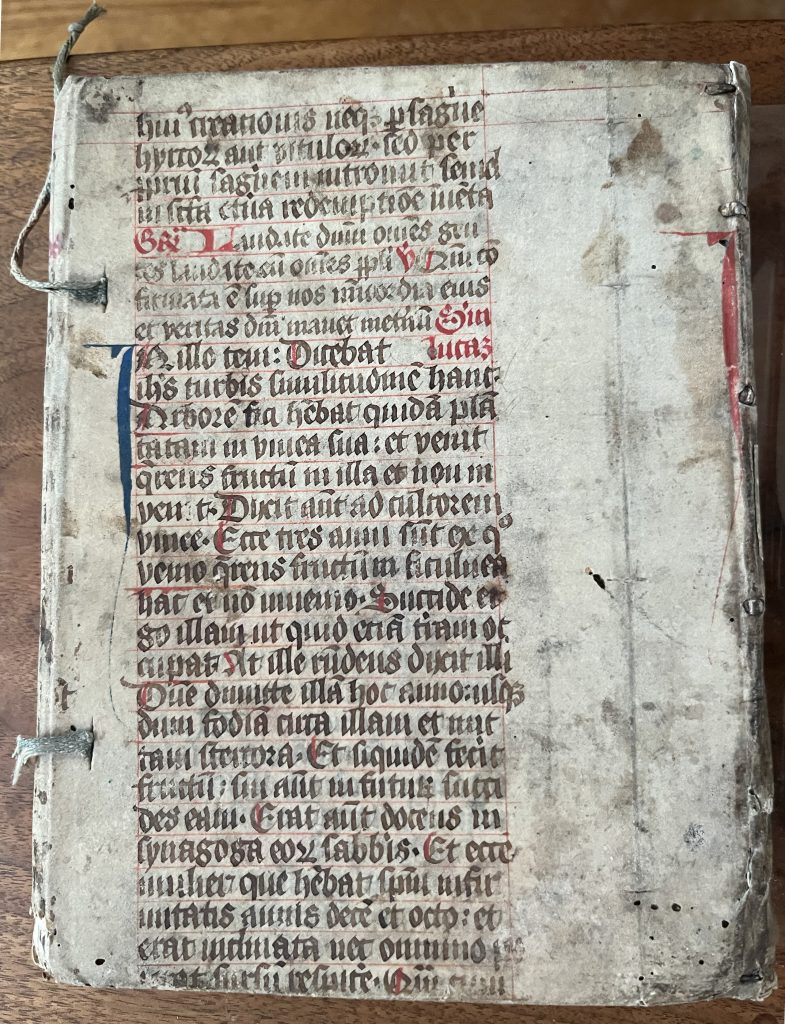 hui⁹ creationis neqȝ p sagūe
hyrcoꝝ aut vituloꝝ · sed per
ꝓpriū sagūem introiuit semel
in sc̄ta et̄na redemptiōe īuēta
Gr̄ Laudate dn̄m om̄es gen
tes laudate eū om̄es ppl̄i ℣ Qm̄ cō
firmata ē suꝑ nos mīcordia eius
et veritas dn̄i manet in et̄nū Scd̄m
In illo tem̄: Dicebat lucaȝ
ih̄s turbis similitudinē hanc ·
Arborē fici hēbat quidā plā
tatam in vinea sua: et venit
q̄rens fructū in illa et non in
venit · Dixit aūt ad cultorem
vinee · Ecce tres anni sūt ex qͦ
venio q̄rens fructū in ficulnea
hac et nō invenio · Succide er
go illam ut quid eciā t̄ram oc
cupat · At ille rn̄dens dixit illi
Dn̄e dimitte illā hoc anno usqȝ
dum fodiā circa illam et mit
tam stercora · Et siquidē fecit
fructū: sin aūt in futuꝝ succi
des eam · Erat aūt docens in
synagoga eoꝝ sabbīs · Et ecce
mulier que hēbat spm̄ infir
mitatis annis decē et octo: et
erat inclinata nec omnino
sursū respicē · Quā cum